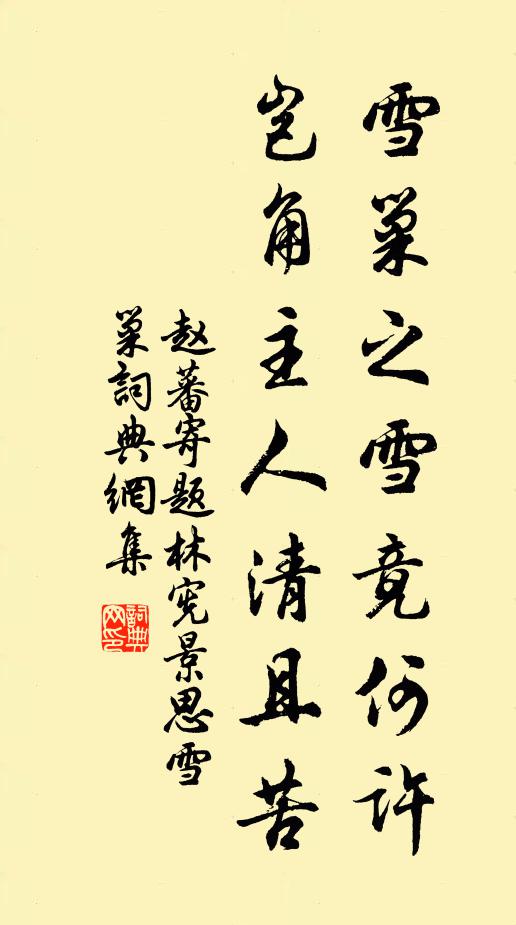 雪巢之雪竟何许
岂角主人清且苦
赵蕃寄题林宪景思雪
巢詞典網集
詞典网印